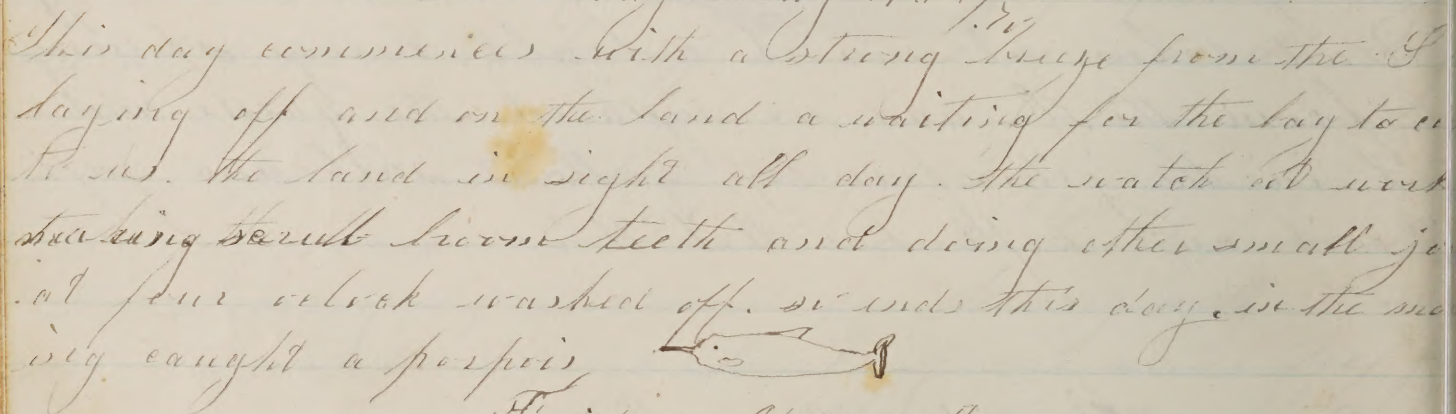 This day commences with a strong breeze from the S
laying off and on the land a waiting for the bay to
to us. the land in sight all day. the watch at work
making scrub broom teeth and doing other small jo
at four oclock washed off. so ends this day. in the mo
ing caught a porpois